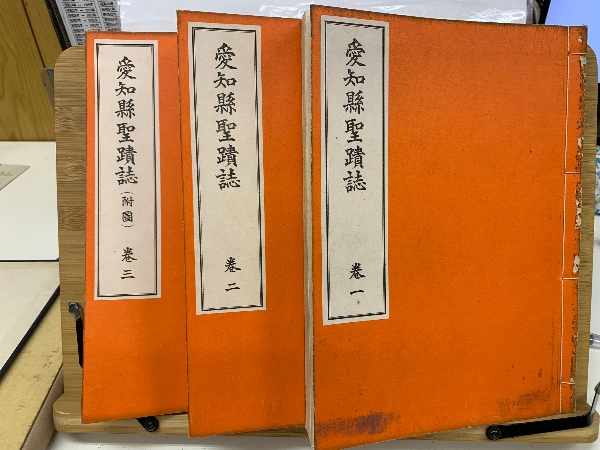 愛知縣聖蹟誌 卷一
愛知縣聖蹟誌 卷二
愛知縣聖蹟誌（附圖） 卷三